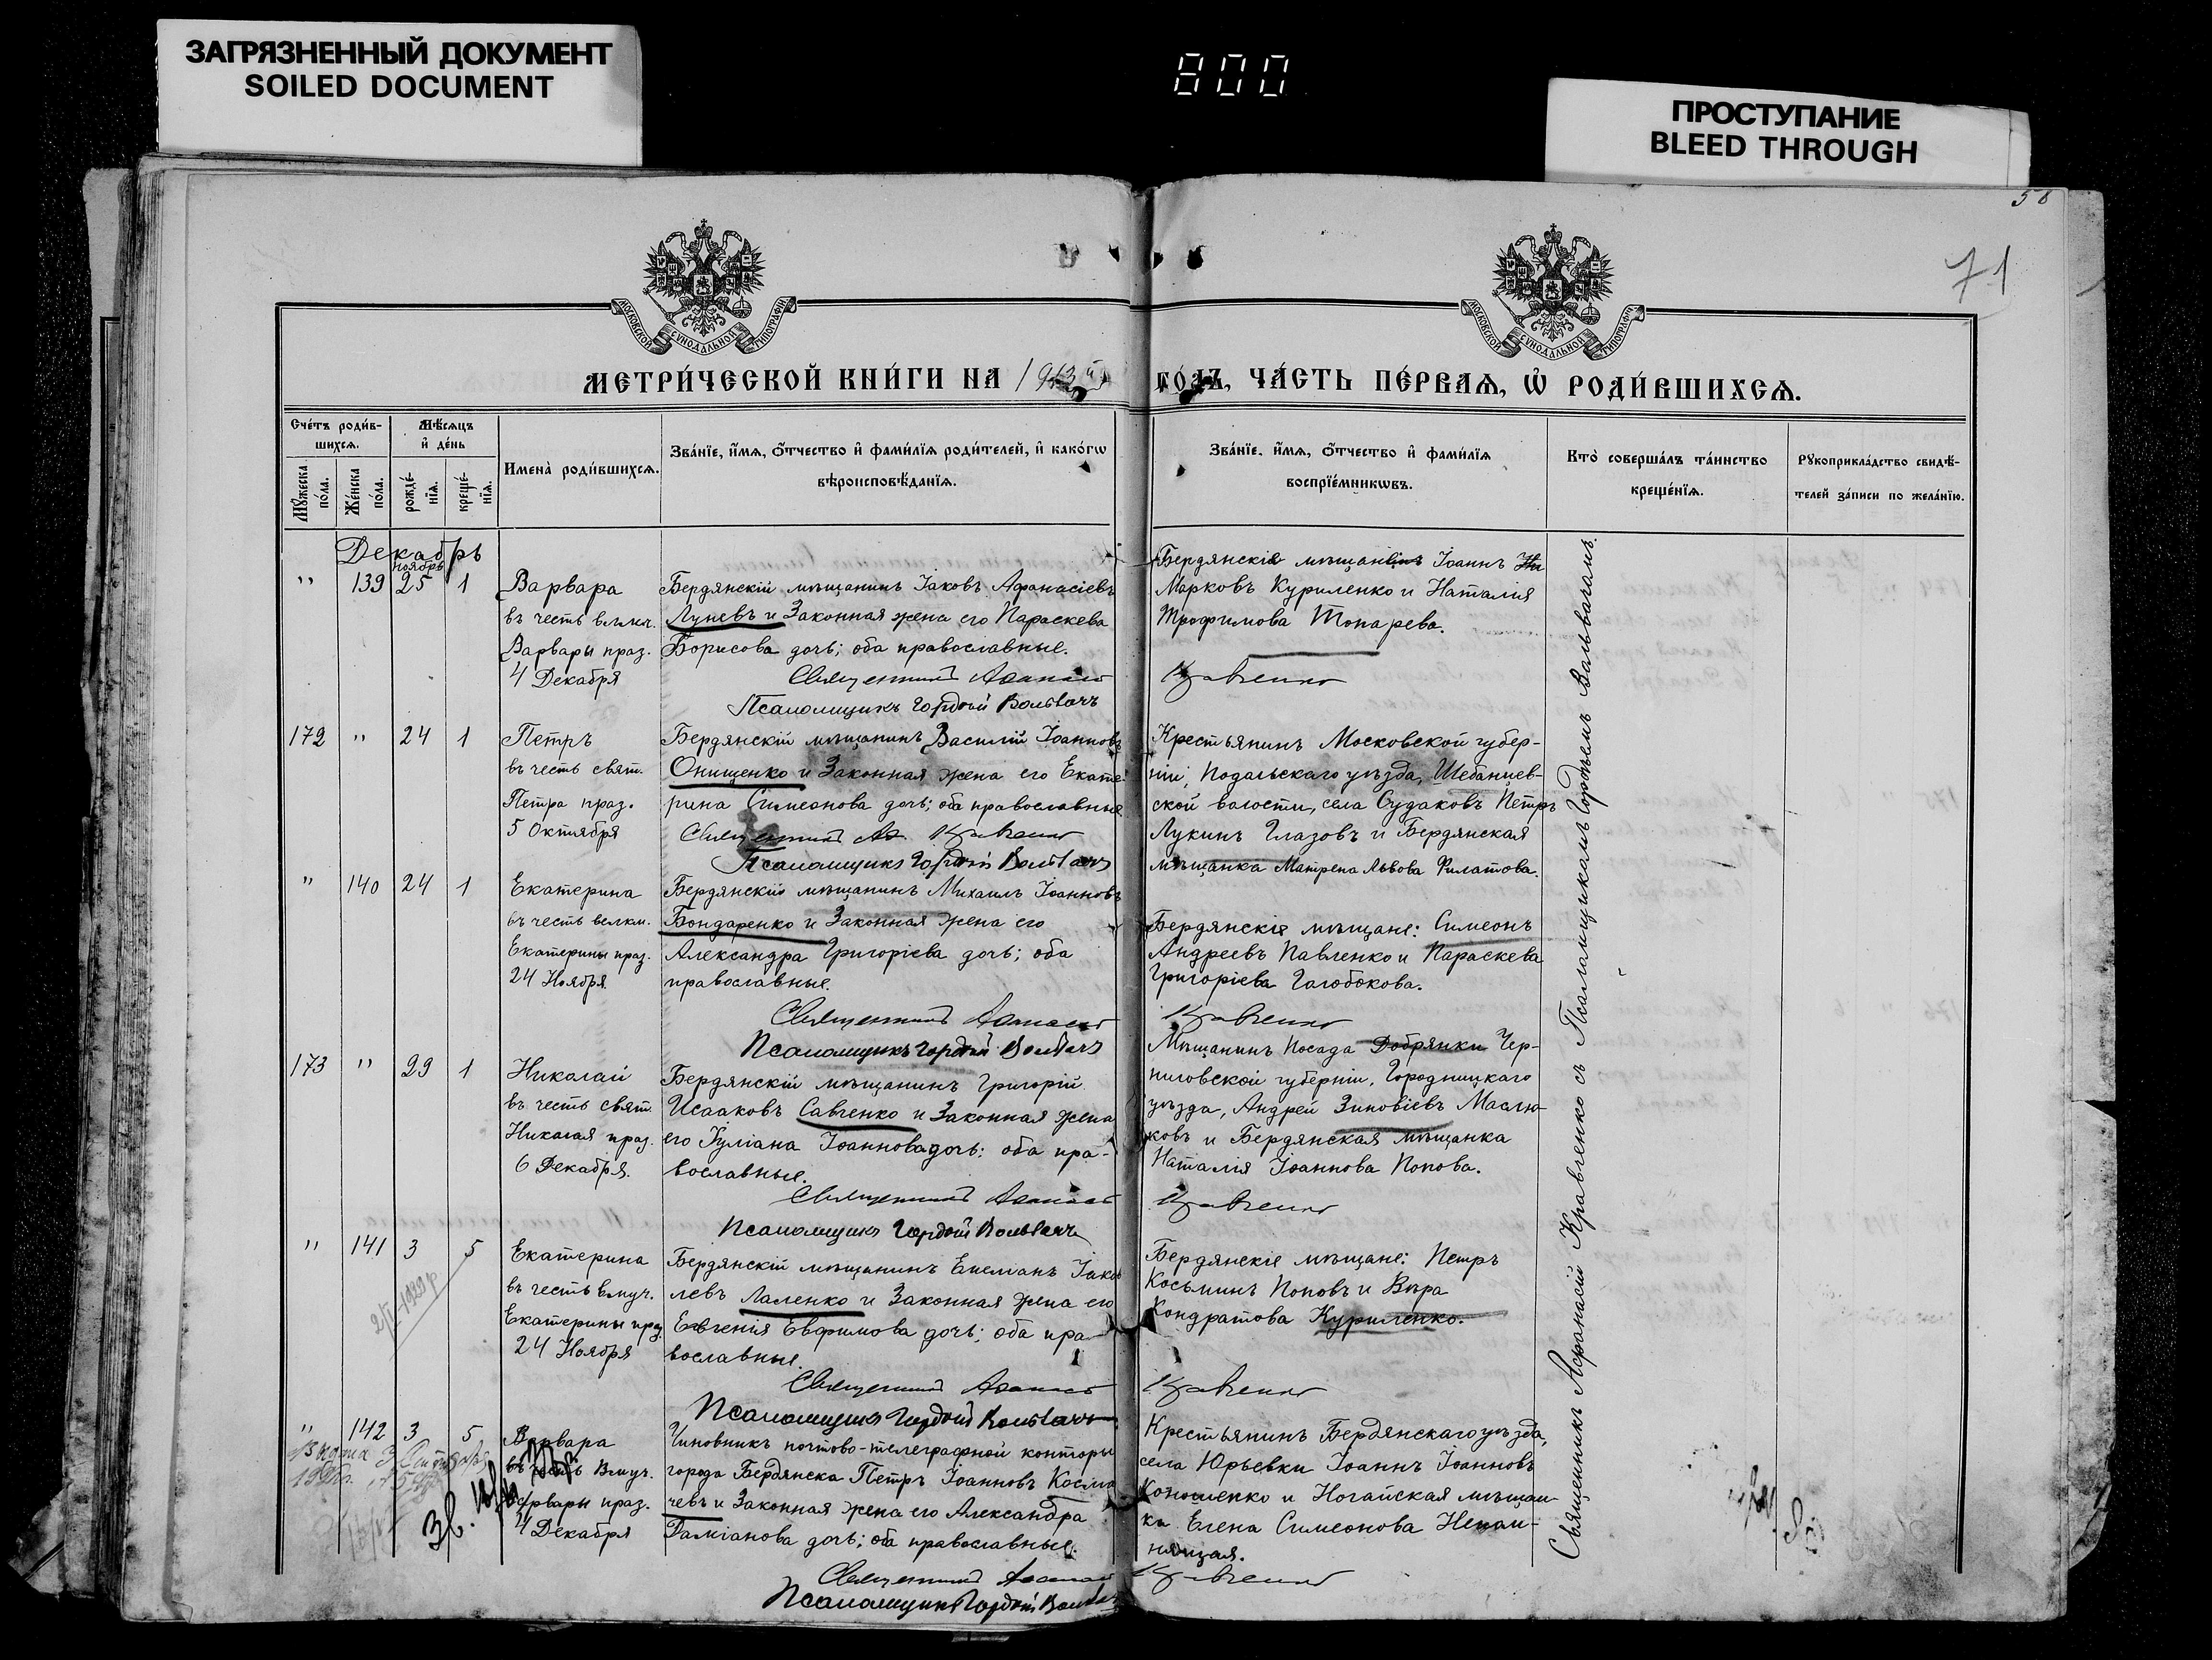 ЗАГРЯЗНЕННЫЙ ДОКУМЕНТ
SOILED DOCUMENT
800
ПРОСТУПАНИЕ
BLEED THROUGH
58
71
МОСКОВСКОЙ СѴНОДАЛЬНОЙ ТИПОГРАФІИ
МОСКОВСКОЙ СѴНОДАЛЬНОЙ ТИПОГРАФІИ
МЕТРИ́ЧЕСКОЙ КНИ́ГИ НА 1913й го́дъ, ча́сть пе́рваѧ, ѡ҆ роди́вшихсѧ.
Сче́тъ роди́в-
шихсѧ.
Мѣ́сѧцъ
и҆ де́нь
Мꙋ́жеска по́ла.
Же́нска по́ла.
рожде́-
нїѧ.
креще́-
нїѧ.
Имена̀ роди́вшихсѧ.
Зва́нїе, и҆́мѧ, ѻ҆́тчество и҆ фами́лїѧ роди́телей, и҆ како́гѡ
вѣроисповѣ́данїѧ.
Зва́нїе, и҆́мѧ, ѻ҆́тчество и҆ фами́лїѧ
воспрїе́мникѡвъ.
Кто̀ соверша́лъ та́инство
креще́нїѧ.
Рꙋкоприкла́дство свидѣ́-
телей за́писи по жела́нїю.
Декабрь
ноябрь
" 139 25 1
Варвара
въ честь влмч.
Варвары праз.
4 Декабря
Бердянскій мѣщанинъ Іаковъ Афанасіевъ
Луневъ и Законная жена его Параскева
Борисова дочь; оба православные.
Священникъ Афанасій
Псаломщикъ Гордій Вольвачъ
Бердянскіе мѣщанинъ Іоаннъ
Марковъ Куриленко и Наталія
Трофимова Токарева.
Кравченко
172 " 24 1
Петръ
въ честь свят.
Петра праз.
5 Октября
Бердянскій мѣщанинъ Василій Іоанновъ
Онищенко и Законная жена его Екате-
рина Симеонова дочь; оба православные
Священникъ Аѳ. Кравченко
Псаломщикъ Гордій Вольвачъ
Крестьянинъ Московской губер-
ніи, Подольскаго уѣзда, Шебанцев-
ской волости, села Судаковъ Петръ
Лукинъ Глазовъ и Бердянская
мѣщанка Матрена Львова Филатова.
" 140 24 1
Екатерина
въ честь велкм.
Екатерины праз.
24 Ноября
Бердянскій мѣщанинъ Михаилъ Іоанновъ
Бондаренко и Законная жена его
Александра Григоріева дочь; оба
православные.
Священникъ Афанасій
Псаломщикъ Гордій Вольвачъ
Бердянскіе мѣщане: Симеонъ
Андреевъ Павленко и Параскева
Григоріева Голобокова.
Кравченко
173 " 29 1
Николай
въ честь свят.
Николая праз.
6 Декабря.
Бердянскій мѣщанинъ Григорій
Исааковъ Савченко и Законная жена
его Іуліана Іоаннова дочь; оба пра-
вославные.
Священникъ Афанасій
Псаломщикъ Гордій Вольвачъ
Мѣщанинъ Посада Добрянки Чер-
ниговской губерніи, Городницкаго
уѣзда, Андрей Зиновіевъ Маслю-
ковъ и Бердянская мѣщанка
Наталія Іоаннова Попова.
Кравченко
" 141 3 5
Екатерина
въ честь влмуч.
Екатерины праз.
24 Ноября
Бердянскій мѣщанинъ Емеліанъ Іаков-
левъ Лаленко и Законная жена его
Евгенія Евфимова дочь; оба пра-
вославные.
Священникъ Афанасій
Псаломщикъ Гордій Вольвачъ
Бердянскіе мѣщане: Петръ
Косьминъ Поповъ и Вѣра
Кондратова Куриленко.
Кравченко
" 142 3 5
Варвара
въ честь Влмуч.
Варвары праз.
4 Декабря
Чиновникъ почтово-телеграфной конторы
города Бердянска Петръ Іоанновъ Косма-
чевъ и Законная жена его Александра
Даміанова дочь; оба православные.
Священникъ Афанасій
Псаломщикъ Гордій Вольвачъ
Крестьянинъ Бердянскаго уѣзда,
села Юрьевки Іоаннъ Іоанновъ
Кононенко и Ногайская мѣщан-
ка Елена Симеонова Непом-
нящая.
Кравченко
Священникъ Афанасій Кравченко съ Псаломщикомъ Гордіемъ Вольвачемъ.